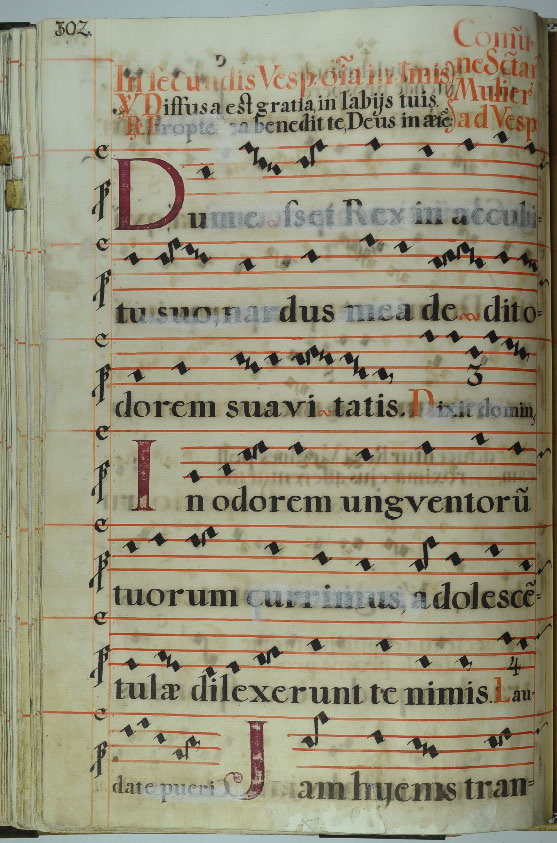 302.
Com̃u-
ne Sc̃tar
Mulier
ad Vesp
In secundis Vesp. oĩa in
℣ Diffusa est gratia, in labijs tuis.
℟. Propte ea benedi te, Deus in æte
Dum esset Rex in accubi-
tu suo, nardus mea dedit o-
dorem suavitatis. Dixit domin,
3
In odorem ungventorũ
tuorum currimus, adolescẽ-
tulæ dilexerunt te nimis. Lau-
4
date pueri Jam hyems tran-